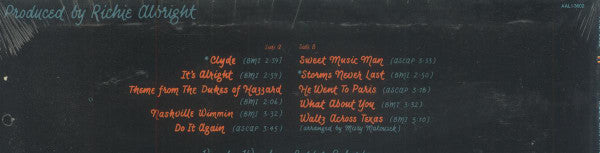 Produced by Richie Albright
AAL1-3602
Side A
*Clyde (BMI 2:39)
It's Alright (BMI 2:39)
Theme from The Dukes of Hazzard
(BMI 2:06)
Nashville Wimmin (BMI 3:32)
Do It Again (ASCAP 3:45)
Side B
Sweet Music Man (ASCAP 3:33)
*Storms Never Last (BMI 2:50)
He Went To Paris (ASCAP 3:18)
What About You (BMI 3:32)
Waltz Across Texas (BMI 3:10)
(arranged by Misty Malowick)